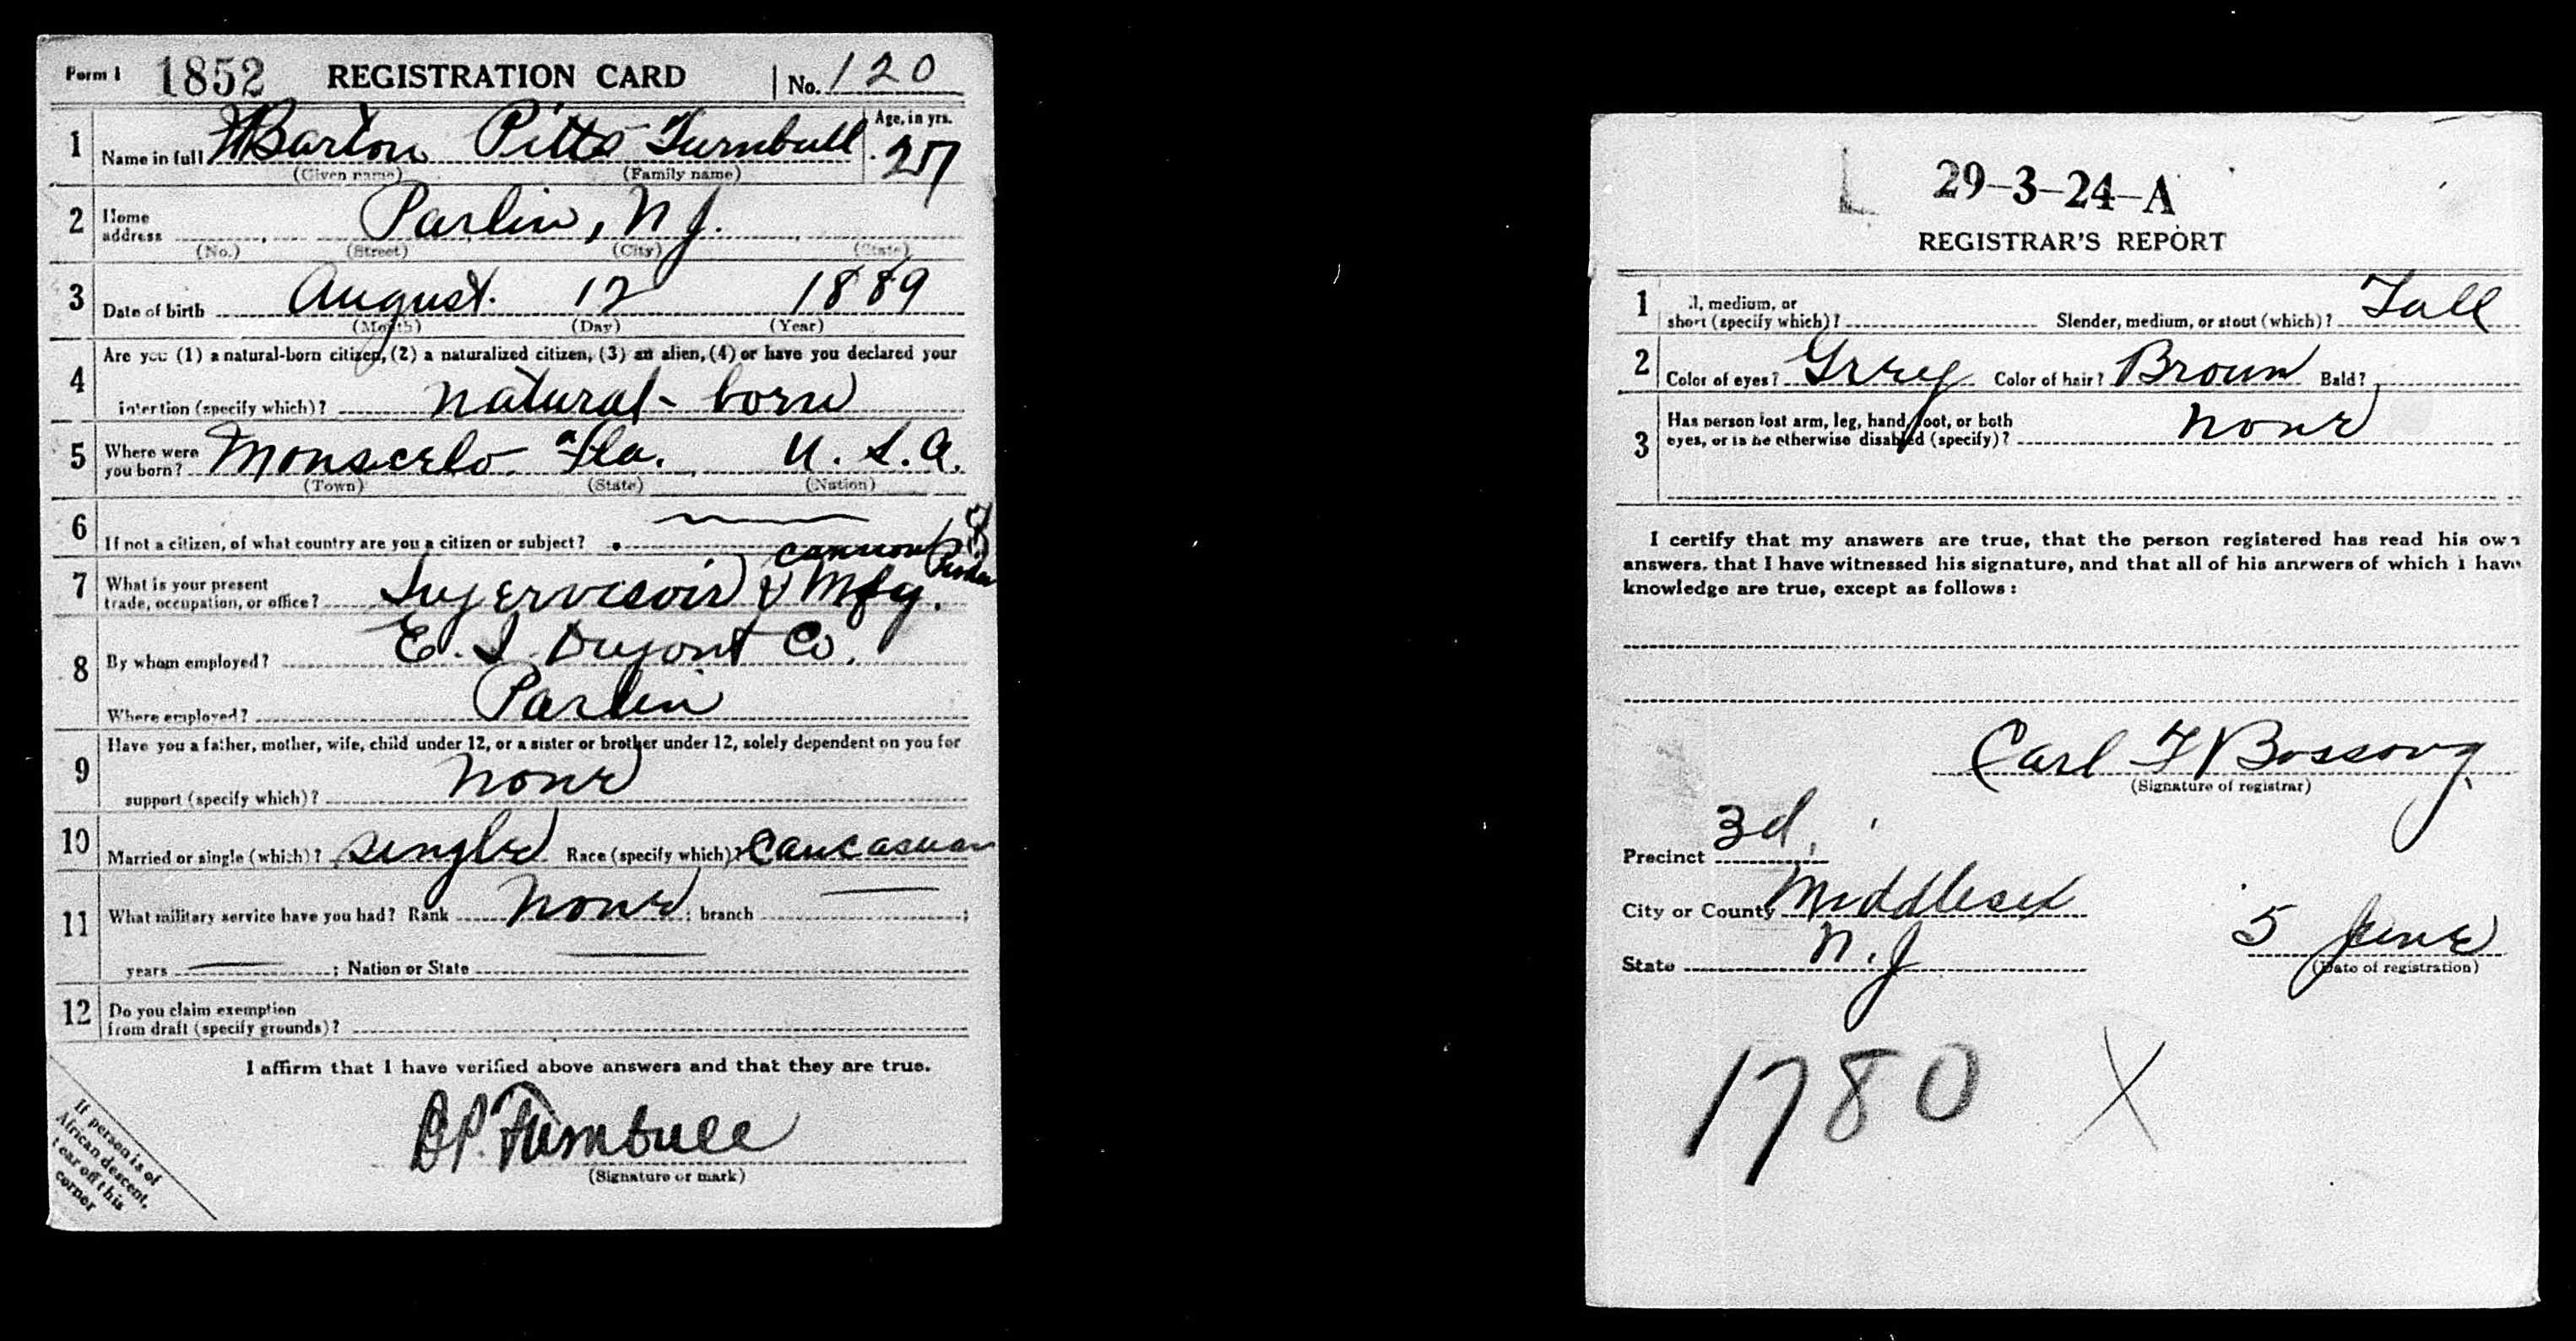 Form 1 1852 REGISTRATION CARD No. 120
1 Name in full Barton Pitts Turnbull Age, in yrs. 27
(Given name) (Family name)
2 Home address Parlin, N J.
(No.) (Street) (City) (State)
3 Date of birth August. 12 1889
(Month) (Day) (Year)
4 Are you (1) a natural-born citizen, (2) a naturalized citizen, (3) an alien, (4) or have you declared your
intention (specify which)? natural-born
5 Where were you born? Monscelo Fla. U. S. A.
(Town) (State) (Nation)
6 If not a citizen, of what country are you a citizen or subject?
7 What is your present trade, occupation, or office? Supervisoir Mfg. cannon
8 By whom employed? E. I. Dupont Co.
Where employed? Parlin
9 Have you a father, mother, wife, child under 12, or a sister or brother under 12, solely dependent on you for
support (specify which)? none
10 Married or single (which)? single Race (specify which)? Caucasian
11 What military service have you had? Rank none ; branch ;
years ; Nation or State
12 Do you claim exemption
from draft (specify grounds)?
I affirm that I have verified above answers and that they are true.
B P. Turnbull
(Signature or mark)
If person is of
African descent,
tear off this
corner
29-3-24-A
REGISTRAR'S REPORT
1 l, medium, or
short (specify which)? Slender, medium, or stout (which)? Tall
2 Color of eyes? Grey Color of hair? Brown Bald?
3 Has person lost arm, leg, hand, foot, or both
eyes, or is he otherwise disabled (specify)? none
I certify that my answers are true, that the person registered has read his own
answers, that I have witnessed his signature, and that all of his answers of which I have
knowledge are true, except as follows:
Carl F Bossong
(Signature of registrar)
Precinct 3d.
City or County Middlesex
State N. J 5 June
(Date of registration)
1780 X